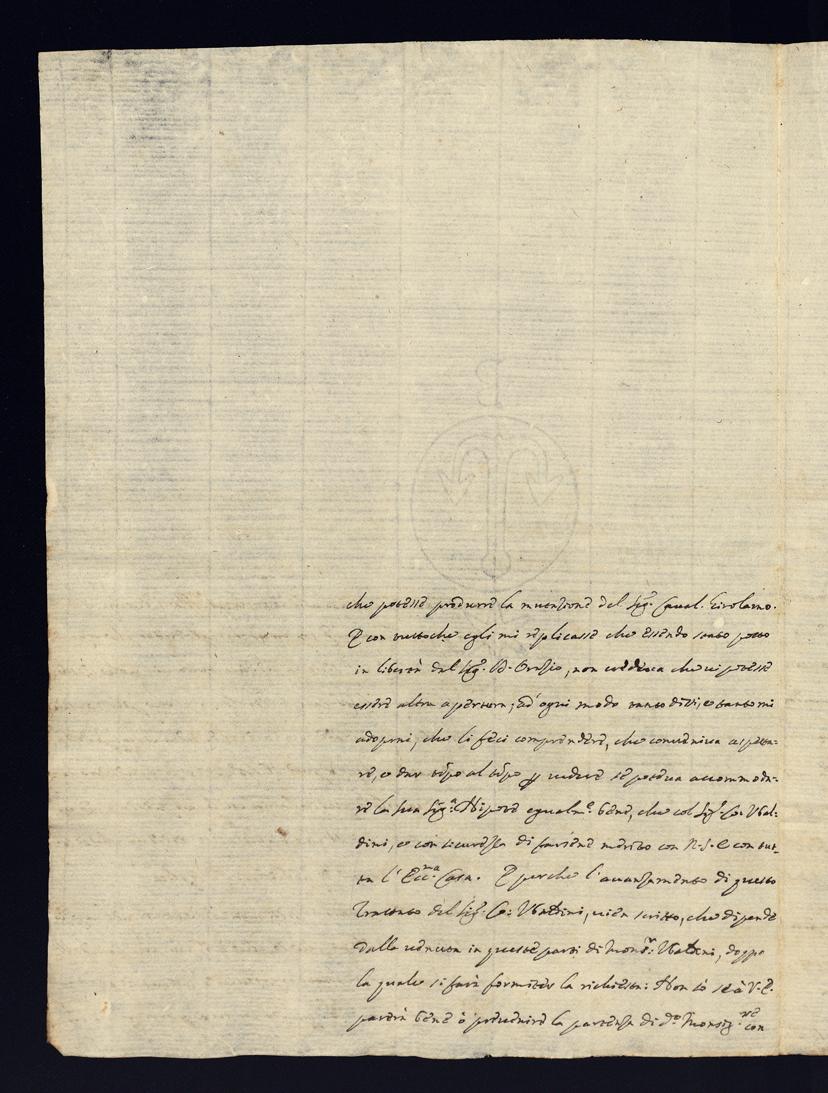 che potesse produrre la mutatione del Sigr. Caual. Girolamo.
E con tuttoche egli mi replicasse che essendo stato posto
in libertà dal Sigr. D. Oratio, non uedeua che ui potesse
essere altra apertura; ad ogni modo tanto dissi, e tanto mi
adoprai, che li feci comprendere, che conueniua aspetta-
re, e dar tẽpo al tẽpo ꝑ uedere se poteua accommoda-
re la sua Sigra. Nipote egualmte. bene, che col Sigr. Co: Vbal-
dini, e con sicurezza di farsene merito con N. S. e con tut-
ta l'Eccma. Casa. E perche l'auanzamento di questo
Trattato del Sigr. Co: Vbaldini, uien scritto, che dipende
dalla uenuta in queste parti di Monsr. Vbaldini, doppo
la quale si farà formiter la richiesta: Non sò se à V. E.
parerà bene ò preuenire la partenza di do. Monsigre. con